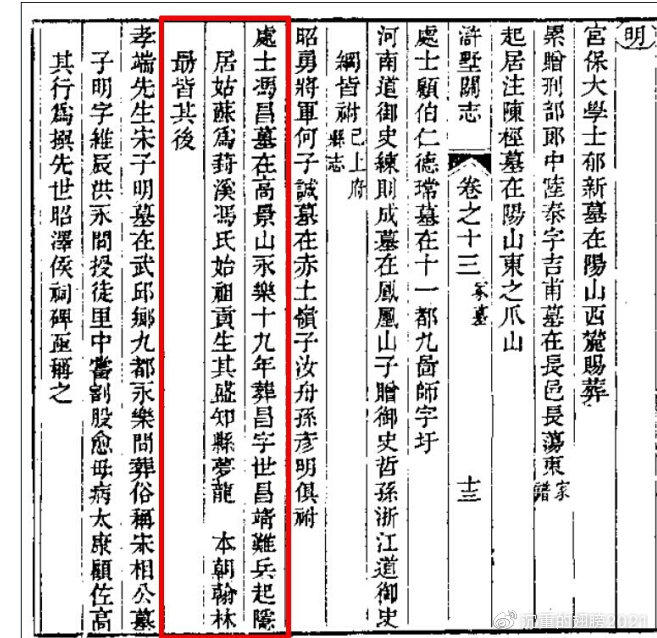 明
宮保大學士郁新墓在陽山西麓賜葬
累贈刑部郎中陸泰字吉甫墓在長邑長蕩東家譜
起居注陳桱墓在陽山東之爪山
滸墅關志 卷之十三 冢墓 十三
處士顧伯仁德瑺墓在十一都九啚師字圩
河南道御史練則成墓在鳳凰山子贈御史哲孫浙江道御史
綱皆祔已上府縣志
昭勇將軍何子誠墓在赤土嶺子汝舟孫彥明俱祔
處士馮昌墓在高景山永樂十九年葬昌字世昌靖難兵起隱
居姑蘇為葑溪馮氏始祖貢生其盛知縣夢龍 本朝翰林
勗皆其後
孝端先生宋子明墓在武邱鄉九都永樂間葬俗稱宋相公墓
子明字維辰洪永間授徒里中嘗割股愈母病太康顧佐高
其行為撰先世昭澤侯祠碑亟稱之
@沉重的翅膀2021